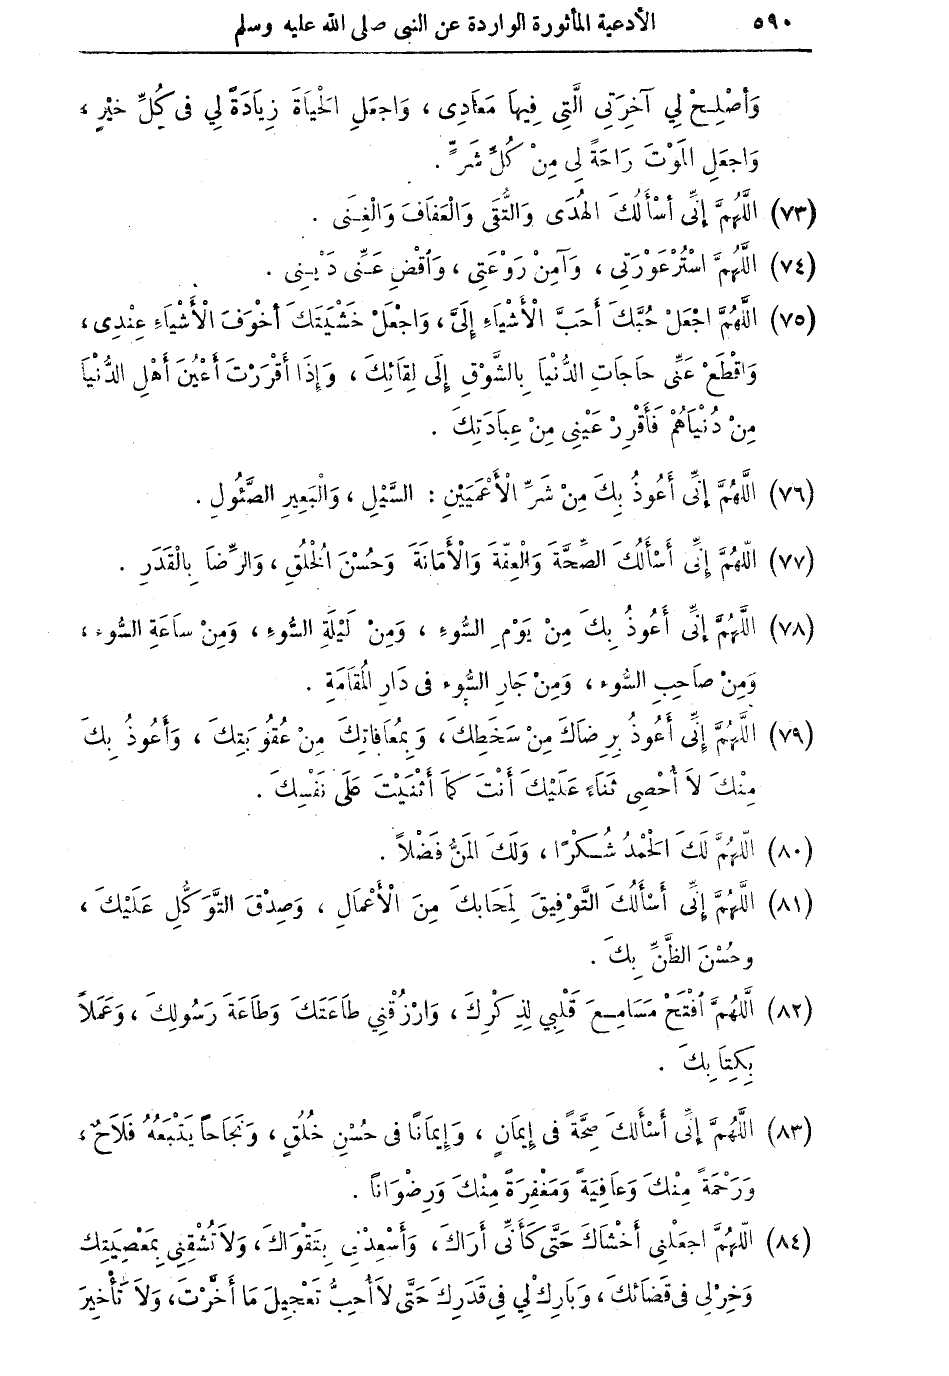 ٥٩٠ الأدعية المأثورة الواردة عن النبى صلى الله عليه وسلم
وَأَصْلِحْ لِي آخِرَتِى الَّتِي فِيهَا مَعَادِى ، وَاجْعَلِ الْحَيَاةَ زِيَادَةً لِي فى كُلِّ خَيْرٍ ،
وَاجْعَلِ الْمَوْتَ رَاحَةً لِى مِنْ كُلِّ شَرٍّ .
(٧٣) اللَّهُمَّ إِنِّى أَسْأَلُكَ الْهُدَى وَالتُّقَى وَالْعَفَافَ وَالْغِنَى .
(٧٤) اللَّهُمَّ اسْتُرْ عَوْرَتِى ، وَآمِنْ رَوْعَتِى ، وَاقْضِ عَنِّى دَيْنِى .
(٧٥) اللَّهُمَّ اجْعَلْ حُبَّكَ أَحَبَّ الْأَشْيَاءِ إِلَىَّ ، وَاجْعَلْ خَشْيَتَكَ أَخْوَفَ الْأَشْيَاءِ عِنْدِى ،
وَاقْطَعْ عَنِّى حَاجَاتِ الدُّنْيَا بِالشَّوْقِ إِلَى لِقَائِكَ ، وَإِذَا أَقْرَرْتَ أَعْيُنَ أَهْلِ الدُّنْيَا
مِنْ دُنْيَاهُمْ فَأَقْرِرْ عَيْنِى مِنْ عِبَادَتِكَ .
(٧٦) اللَّهُمَّ إِنِّى أَعُوذُ بِكَ مِنْ شَرِّ الْأَعْمَيَيْنِ : السَّيْلِ ، وَالْبَعِيرِ الصَّئُولِ .
(٧٧) اللَّهُمَّ إِنِّى أَسْأَلُكَ الصِّحَّةَ وَالْعِفَّةَ وَالْأَمَانَةَ وَحُسْنَ الْخُلُقِ ، وَالرِّضَا بِالْقَدَرِ .
(٧٨) اللَّهُمَّ إِنِّى أَعُوذُ بِكَ مِنْ يَوْمِ السُّوءِ ، وَمِنْ لَيْلَةِ السُّوءِ ، وَمِنْ سَاعَةِ السُّوءِ ،
وَمِنْ صَاحِبِ السُّوءِ ، وَمِنْ جَارِ السُّوءِ فى دَارِ الْمُقَامَةِ .
(٧٩) اللَّهُمَّ إِنِّى أَعُوذُ بِرِضَاكَ مِنْ سَخَطِكَ ، وَبِمُعَافَاتِكَ مِنْ عُقُوبَتِكَ ، وَأَعُوذُ بِكَ
مِنْكَ لَا أُحْصِى ثَنَاءً عَلَيْكَ أَنْتَ كَمَا أَثْنَيْتَ عَلَى نَفْسِكَ .
(٨٠) اللَّهُمَّ لَكَ الْحَمْدُ شُكْرًا ، وَلَكَ الْمَنُّ فَضْلاً .
(٨١) اللَّهُمَّ إِنِّى أَسْأَلُكَ التَّوْفِيقَ لِمَحَابِكَ مِنَ الْأَعْمَالِ ، وَصِدْقَ التَّوَكُّلِ عَلَيْكَ ،
وحُسْنَ الظَّنِّ بِكَ .
(٨٢) اللَّهُمَّ افْتَحْ مَسَامِعَ قَلْبِي لِذِكْرِكَ ، وَارْزُقْنِي طَاعَتَكَ وَطَاعَةَ رَسُولِكَ ، وَعَمَلاً
بِكِتَابِكَ .
(٨٣) اللَّهُمَّ إِنِّى أَسْأَلُكَ صِحَّةً فى إِيمَانٍ ، وَإِيمَانًا فى حُسْنِ خُلُقٍ ، وَنَجَاحاً يَتْبَعُهُ فَلَاحٌ ،
وَرَحْمَةً مِنْكَ وَعَافِيَةً وَمَغْفِرَةً مِنْكَ وَرِضْوَاناً .
(٨٤) اللَّهُمَّ اجْعَلْنِى أَخْشَاكَ حَتَّى كَأَنِّى أَرَاكَ ، وَأَسْعِدْنِى بِتَقْوَاكَ ، وَلَا تُشْقِنِى بِمَعْصِيَتِكَ
وَخِرْ لِى فى قَضَائِكَ ، وَبَارِكْ لِي فِي قَدَرِكَ حَتَّى لَا أُحِبَّ تَعْجِيلَ مَا أَخَّرْتَ ، وَلَا تَأْخِيرَ